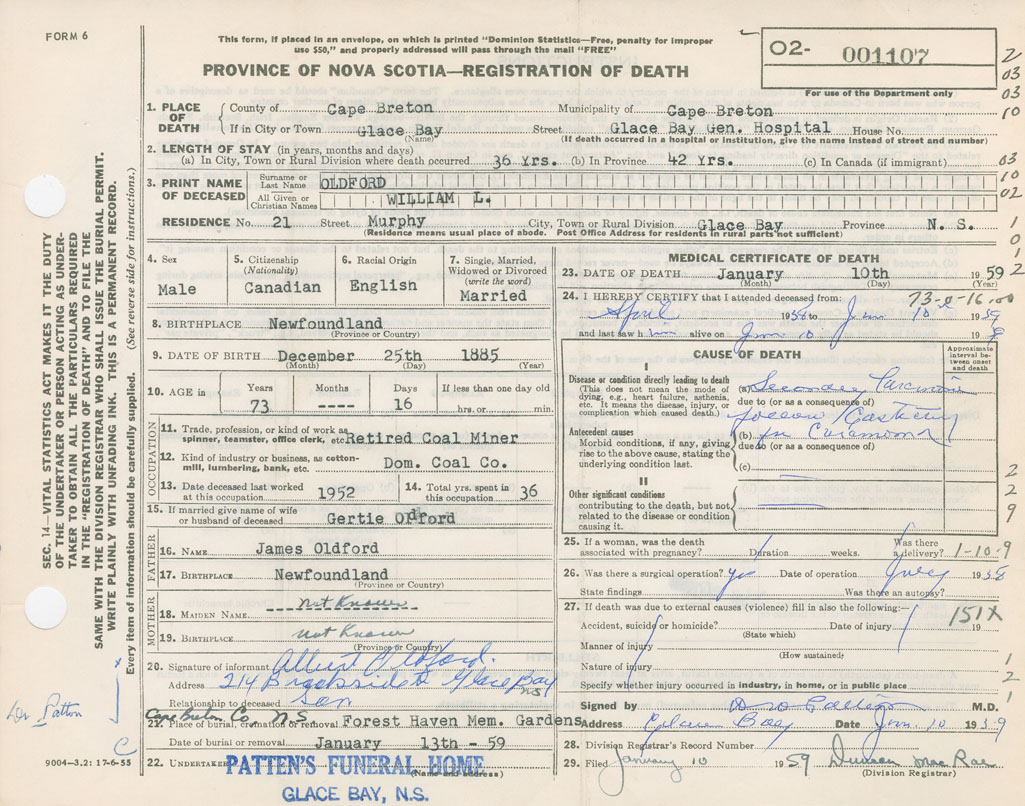 FORM 6
This form, if placed in an envelope, on which is printed "Dominion Statistics—Free, penalty for improper
use $50," and properly addressed will pass through the mail "FREE"
PROVINCE OF NOVA SCOTIA—REGISTRATION OF DEATH
02- 001107
For use of the Department only
2
03
03
10
1. PLACE OF DEATH
County of Cape Breton Municipality of Cape Breton
If in City or Town Glace Bay Street Glace Bay Gen. Hospital House No.
(Name) (If death occurred in a hospital or institution, give the name instead of street and number)
2. LENGTH OF STAY (in years, months and days)
(a) In City, Town or Rural Division where death occurred 36 Yrs. (b) In Province 42 Yrs. (c) In Canada (if immigrant)
03
10
02
3. PRINT NAME OF DECEASED
Surname or Last Name OLDFORD
All Given or Christian Names WILLIAM L.
RESIDENCE No. 21 Street Murphy City, Town or Rural Division Glace Bay Province N. S.
(Residence means usual place of abode. Post Office Address for residents in rural parts not sufficient)
1
0
1
2
4. Sex
Male
5. Citizenship
(Nationality)
Canadian
6. Racial Origin
English
7. Single, Married,
Widowed or Divorced
(write the word)
Married
8. BIRTHPLACE Newfoundland
(Province or Country)
9. DATE OF BIRTH December 25th 1885
(Month) (Day) (Year)
10. AGE in
Years Months Days If less than one day old
73 ---- 16 hrs. or min.
OCCUPATION
11. Trade, profession, or kind of work as
spinner, teamster, office clerk, etc. Retired Coal Miner
12. Kind of industry or business, as cotton-
mill, lumbering, bank, etc. Dom. Coal Co.
13. Date deceased last worked
at this occupation 1952
14. Total yrs. spent in
this occupation 36
15. If married give name of wife
or husband of deceased Gertie Oldford
FATHER
16. NAME James Oldford
17. BIRTHPLACE Newfoundland
(Province or Country)
MOTHER
18. MAIDEN NAME not Known
19. BIRTHPLACE not Known
(Province or Country)
20. Signature of informant Albert Oldford.
Address 214 Brookside St Glace Bay
N.S.
Relationship to deceased son
Cape Breton Co N.S
21. Place of burial, cremation or removal Forest Haven Mem. Gardens
Date of burial or removal January 13th - 59
22. UNDERTAKER PATTEN'S FUNERAL HOME
(Name and address)
GLACE BAY, N.S.
MEDICAL CERTIFICATE OF DEATH
23. DATE OF DEATH January 10th 1959
(Month) (Day) (Year)
73-0-16.00
24. I HEREBY CERTIFY that I attended deceased from:
April 1958 to Jan 10 1959
and last saw him alive on Jan 10 19
CAUSE OF DEATH
Approximate
interval be-
tween onset
and death
I
Disease or condition directly leading to death
(This does not mean the mode of
dying, e.g., heart failure, asthenia,
etc. It means the disease, injury, or
complication which caused death.)
(a) Secondary Carcinoma
due to (or as a consequence of)
Antecedent causes
Morbid conditions, if any, giving
rise to the above cause, stating the
underlying condition last.
(b) for Carcinoma
due to (or as a consequence of)
(c)
II
Other significant conditions
contributing to the death, but not
related to the disease or condition
causing it.
2
2
9
25. If a woman, was the death
associated with pregnancy? Duration weeks. Was there
a delivery? 1-10-9
26. Was there a surgical operation? yes Date of operation July 1958
State findings Was there an autopsy?
27. If death was due to external causes (violence) fill in also the following:—
151X
Accident, suicide or homicide? Date of injury 19
(State which)
Manner of injury
(How sustained)
Nature of injury
Specify whether injury occurred in industry, in home, or in public place
1
2
1
Signed by M.D.
Address Glace Bay Date Jan 10 1959
28. Division Registrar's Record Number
29. Filed January 10 1959 Duncan MacRae
(Division Registrar)
SEC. 14—VITAL STATISTICS ACT MAKES IT THE DUTY
OF THE UNDERTAKER OR PERSON ACTING AS UNDER-
TAKER TO OBTAIN ALL THE PARTICULARS REQUIRED
IN THE "REGISTRATION OF DEATH" AND TO FILE THE
SAME WITH THE DIVISION REGISTRAR WHO SHALL ISSUE THE BURIAL PERMIT.
WRITE PLAINLY WITH UNFADING INK. THIS IS A PERMANENT RECORD.
Every item of information should be carefully supplied. (See reverse side for instructions.)
Dr Patton
x
C
9004—3.2: 17-6-55